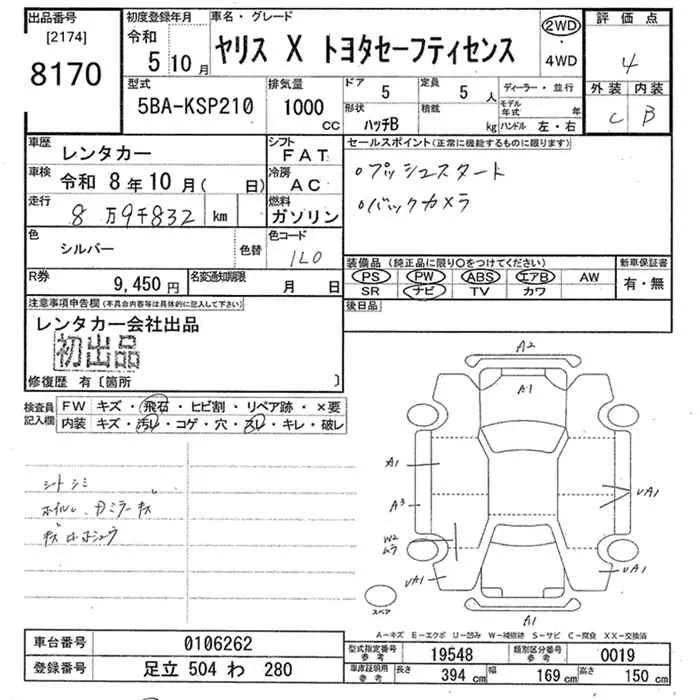 出品番号
[2174]
8170
初度登録年月
令和
5 10月
車名・グレード
ヤリス X トヨタセーフティセンス
2WD
・
4WD
評価点
4
外装 内装
C B
型式
5BA-KSP210
排気量
1000
CC
ドア
5
定員
5 人
形状
ハッチB
積載
kg
ディーラー・並行
モデル年式 年
ハンドル 左・右
車歴
レンタカー
シフト
FAT
車検
令和 8年10月( 日)
冷房
AC
走行
8万9千832 km
燃料
ガソリン
色
シルバー
色替
色コード
1L0
R券
9,450円
名変通知期限
月 日
セールスポイント(正常に機能するものに限ります)
○プッシュスタート
○バックカメラ
装備品(純正品に限り○をつけてください)
PS PW ABS エアB AW
SR ナビ TV カワ
新車保証書
有・無
後日品
注意事項申告欄(本具合内容等は具体的に記入して下さい)
レンタカー会社出品
初出品
修復歴 有〔箇所 〕
検査員記入欄
FW キズ・飛石・ヒビ割・リペア跡・×要
内装 キズ・汚レ・コゲ・穴・スレ・キレ・破レ
シートシミ
ホイール、カミラーキズ
A2
A1
A1
A3
W2
ムラ
UA1
UA1
UA1
A1
スペア
A-キズ E-エクボ U-凹み W-補修跡 S-サビ C-腐食 XX-交換済
車台番号
0106262
登録番号
足立 504 わ 280
型式指定番号
参考
19548
類別区分番号
参考
0019
車庫証明用
参考
長さ
394 cm
幅
169 cm
高さ
150 cm